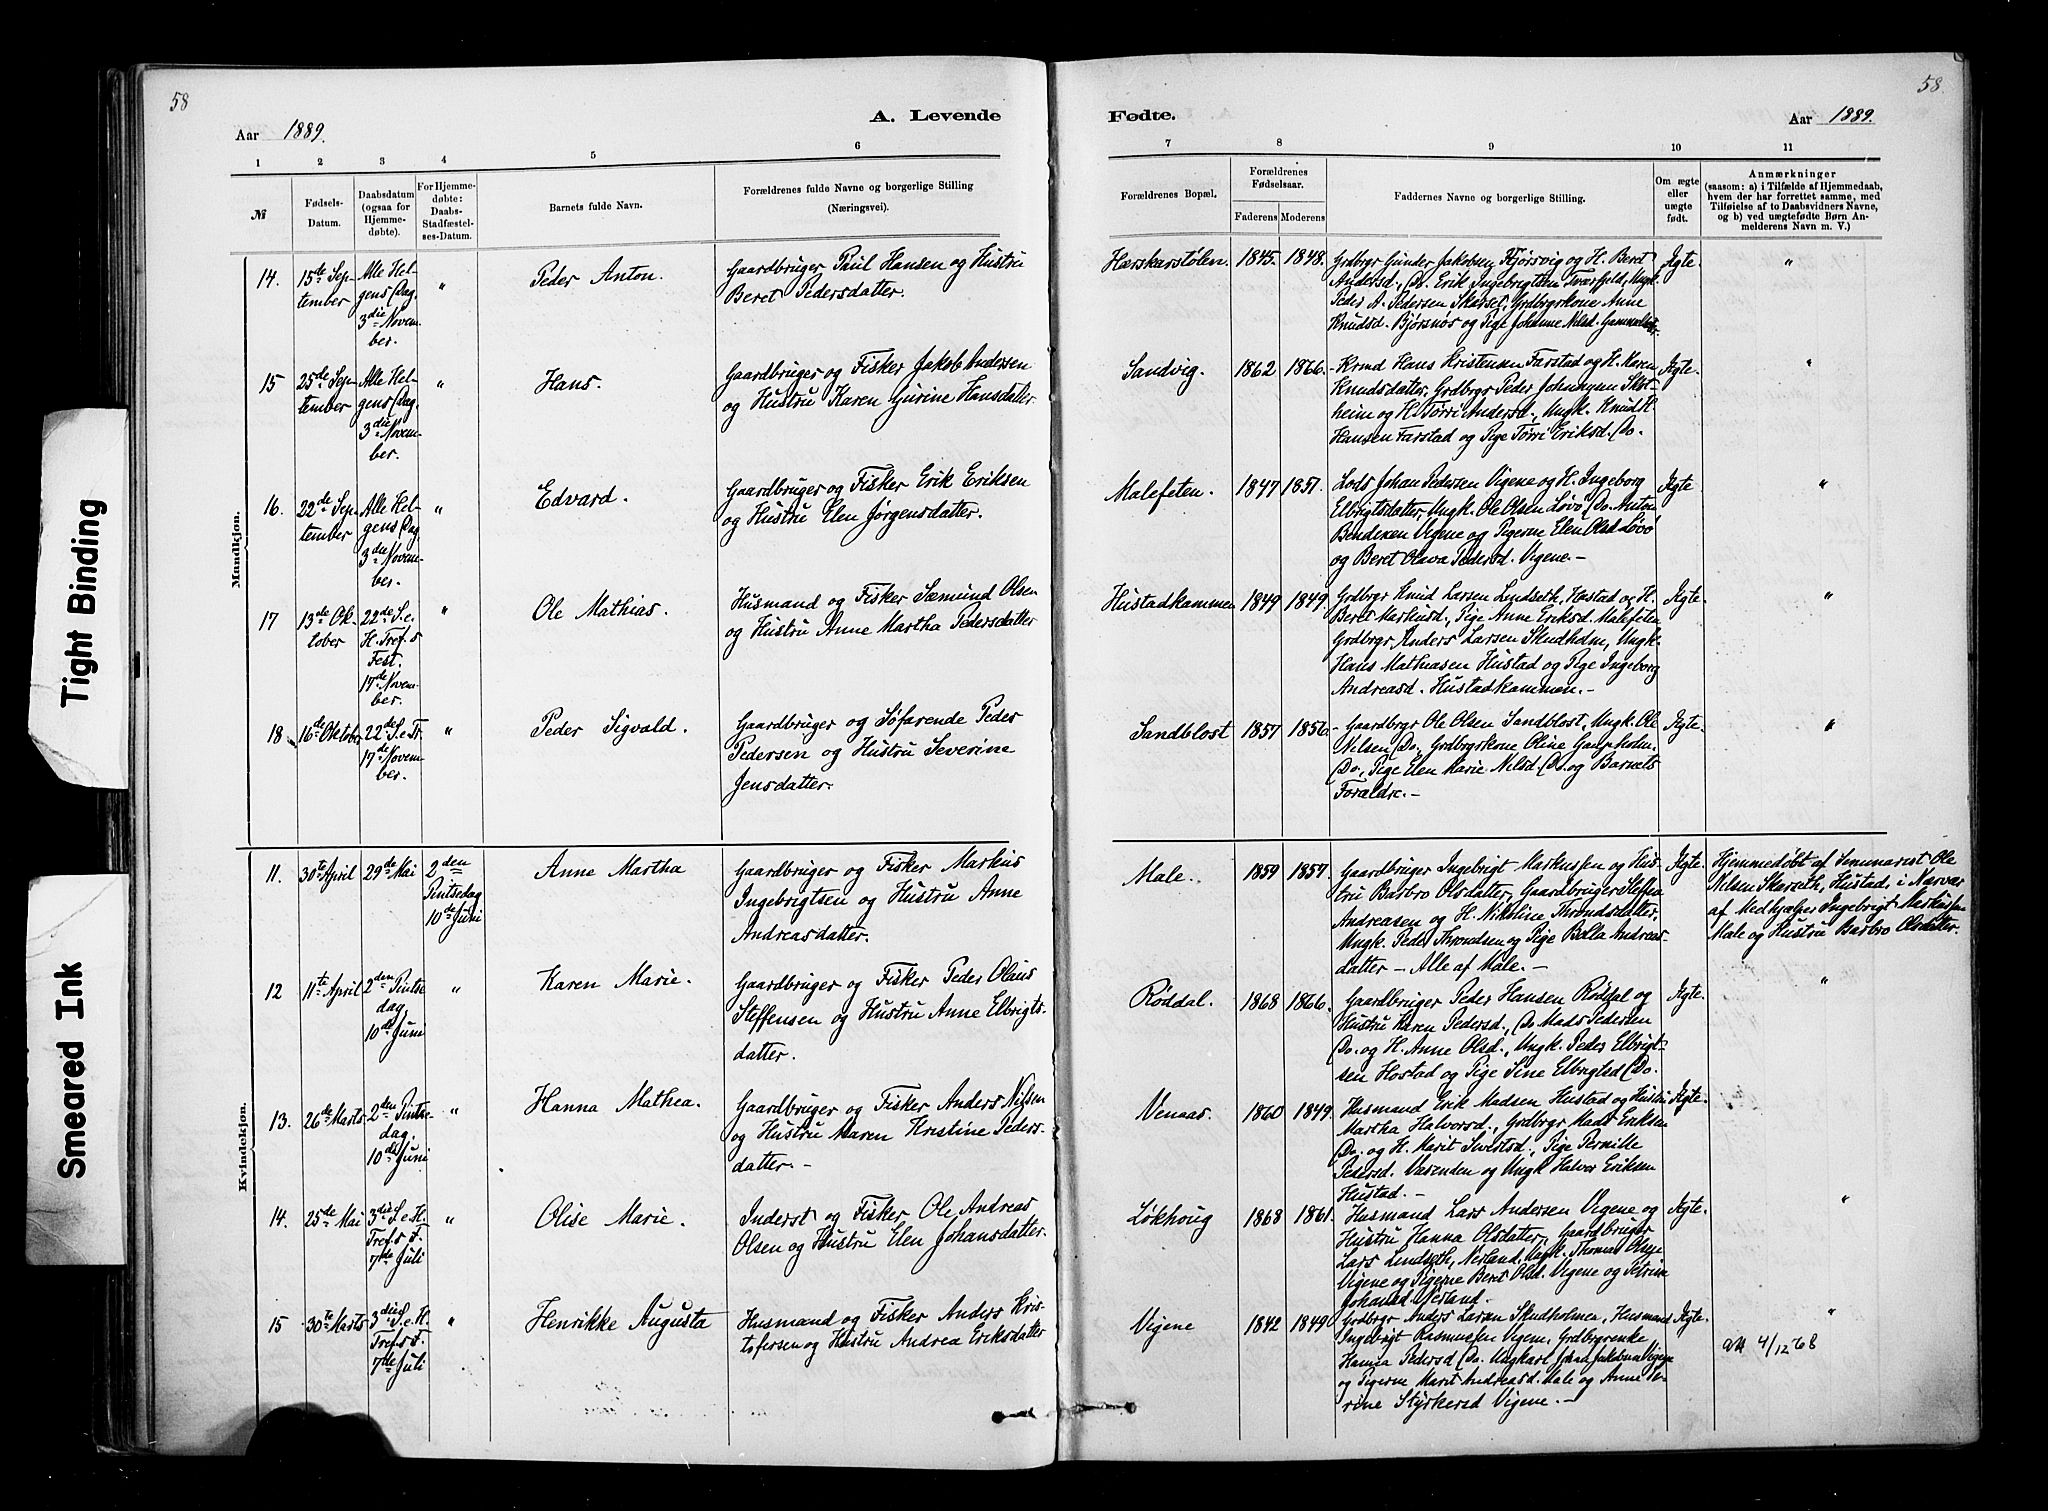 58
58.
A. Levende
Fødte.
Aar 1889.
Aar 1889.
1 2 3 4 5 6
7 8 9 10 11
№
Fødsels-
Datum.
Daabsdatum
(ogsaa for
Hjemme-
døbte).
For Hjemme-
døbte:
Daabs-
Stadfæstel-
ses-Datum.
Barnets fulde Navn.
Forældrenes fulde Navne og borgerlige Stilling
(Næringsvei).
Forældrenes Bopæl.
Forældrenes
Fødselsaar.
Faderens Moderens
Faddernes Navne og borgerlige Stilling.
Om ægte
eller
uægte
født.
Anmærkninger
(saasom: a) i Tilfælde af Hjemmedaab,
hvem der har forrettet samme, med
Tilføielse af to Daabsvidners Navne,
og b) ved uægtefødte Børn An-
melderens Navn m. V.)
Mandkjøn.
14.
15de Sep-
tember
Alle Hel-
gens Dag.
3die Novem-
ber.
"
Peder Anton.
Gaardbruger Paul Hansen og Hustru
Beret Pedersdatter.
Hærskarstølen.
1845.
1848.
Grdbrgr Gunder Jakobsen og H. Beret
Andersd., Do. Erik Ingebrigtsen Tværfeld, Ungk.
Peder A. Pedersen Skarset, Grdbrgrkone Anne
Knudsd. Bjørsnøs og Pige Johanne Nilsd.
Ægte.
"
15
25de Sep-
tember
Alle Hel-
gens Dag.
3die Novem-
ber.
"
Hans.
Gaardbruger og Fisker Jakob Andersen
og Hustru Karen Gurine Hansdatter
Sandvig.
1862
1866.
- Krmd Hans Kristensen Farstad og H. Maren
Knudsdatter, Grdbrgr Peder Johnsen
heim og H. Tørri Andersd., Ungk. Knud H.
Hansen Farstad og Pige Tørri Eriksd. Do.
Ægte.
"
16.
22de Sep-
tember
Alle Hel-
gens Dag
3die Novem-
ber.
"
Edvard.
Gaardbruger og Fisker Erik Eriksen
og Hustru Elen Jørgensdatter.
Malefeten.
1847
1851.
Lods Johan Pedersen Vigene og H. Ingeborg
Elbrigtsdatter, Ungk. Ole Olsen Løvø, Do. Anton
Bendixen Vigene og Pigerne Elen Olsd. Løvø
og Beret Olava Pedersd. Vigene. -
Ægte
"
17
13de Ok-
tober
22de S. e.
H. Tref.s
Fest.
17de Novem-
ber.
"
Ole Mathias.
Husmand og Fisker Sæmund Olsen
og Hustru Anne Martha Pedersdatter
Hustadkammen
1849
1849.
Grdbrgr Knud Larsen Lindseth, Hostad og H.
Beret Markusd., Pige Anne Eriksd. Malefeten,
Grdbrgr Anders Larsen Skudholm, Ungk.
Hans Mathiasen Hustad og Pige Ingeborg
Andreasd. Hustadkammen. -
Ægte.
"
18
16de Oktober
22de S. e. Tr.
17de Novem-
ber.
"
Peder Sigvald.
Gaardbruger og Søfarende Peder
Pedersen og Hustru Severine
Jensdatter.
Sandblost
1857
1856.
- Gaardbrgr Ole Olsen Sandblost, Ungk. Ole
Nilsen Do., Grdbrgrkone Oline
Do., Pige Elen Marie Nilsd. Do. og Barnets
Forældre. -
Ægte.
"
Kvindekjøn.
11.
30te April
29de Mai
2den
Pintsedag
10de Juni
Anne Martha
Gaardbruger og Fisker Markus
Ingebrigtsen og Hustru Anne
Andreasdatter.
Male.
1859
1857.
Gaardbruger Ingebrigt Markussen og Hus-
tru Barbro Olsdatter, Gaardbruger Steffen
Andreasen og H. Nikoline Throndsdatter,
Ungk. Peder Throndsen og Pige Bella Andreas-
datter - Alle af Male. -
Ægte.
Hjemmedøbt af Seminarist Ole
Nilsen Skarseth, Hustad, i Nærvær
af Medhjælper Ingebrigt Markussen
Male og Hustru Barbro Olsdatter.
12
11te April
2den Pintse-
dag,
10de Juni
"
Karen Marie.
Gaardbruger og Fisker Peder Olaus
Steffensen og Hustru Anne Elbrigts-
datter.
Røddal.
1868
1866.
Gaardbruger Peder Hansen Røddal og
Hustru Karen Pedersd., Do. Mads Pedersen
Do. og H. Anne Olsd., Ungk. Peder Elbrigt-
sen Hostad og Pige Sine Elbrigtsd Do.
Ægte.
"
13.
26de Marts
2den Pintse-
dag,
10de Juni
"
Hanna Mathea.
Gaardbruger og Fisker Anders Nilsen
og Hustru Maren Kristine Peders-
datter. -
Venaas.
1860
1849.
Husmand Erik Madsen Hustad og Hustru
Martha Halvorsd., Grdbrgr Mads Eriksen
Do. og H. Marit Sivertsd., Pige Pernille
Pedersd. Varenden og Ungk. Halvor Eriksen
Hustad. -
Ægte.
14.
25de Mai
3die S. e. H.
Tref.s F.
7de Juli
"
Olise Marie.
Inderst og Fisker Ole Andreas
Olsen og Hustru Elen Johansdatter.
Løkhoug
1868
1861.
Husmand Lars Andersen Vigene og
Hustru Hanna Olsdatter, Gaardbruger
Lars Lindseth, Nerland, Ungk. Thomas Olsen
Vigene og Pigerne Beret Olsd. Vigene og Petrine
Johansd. Nerland.
Ægte.
"
15
30te Marts
3die S. e. H.
Tref.s F
7de Juli
"
Henrikke Augusta
Husmand og Fisker Anders Kris-
tofersen og Hustru Andrea Eriksdatter
Vigene
1842
1849
Grdbrgr Anders Larsen Skudholmen, Husmand
Ingebrigt Rasmussen Vigene, Grdbrgrenke
Hanna Pedersd Do., Ungkarl Johan Jakobsen Vigene
og Pigerne Marit Andreasd. Male og Anne Se-
rine Styrkersd Vigene. -
Ægte.
"
4/12 68
Tight Binding
Smeared Ink